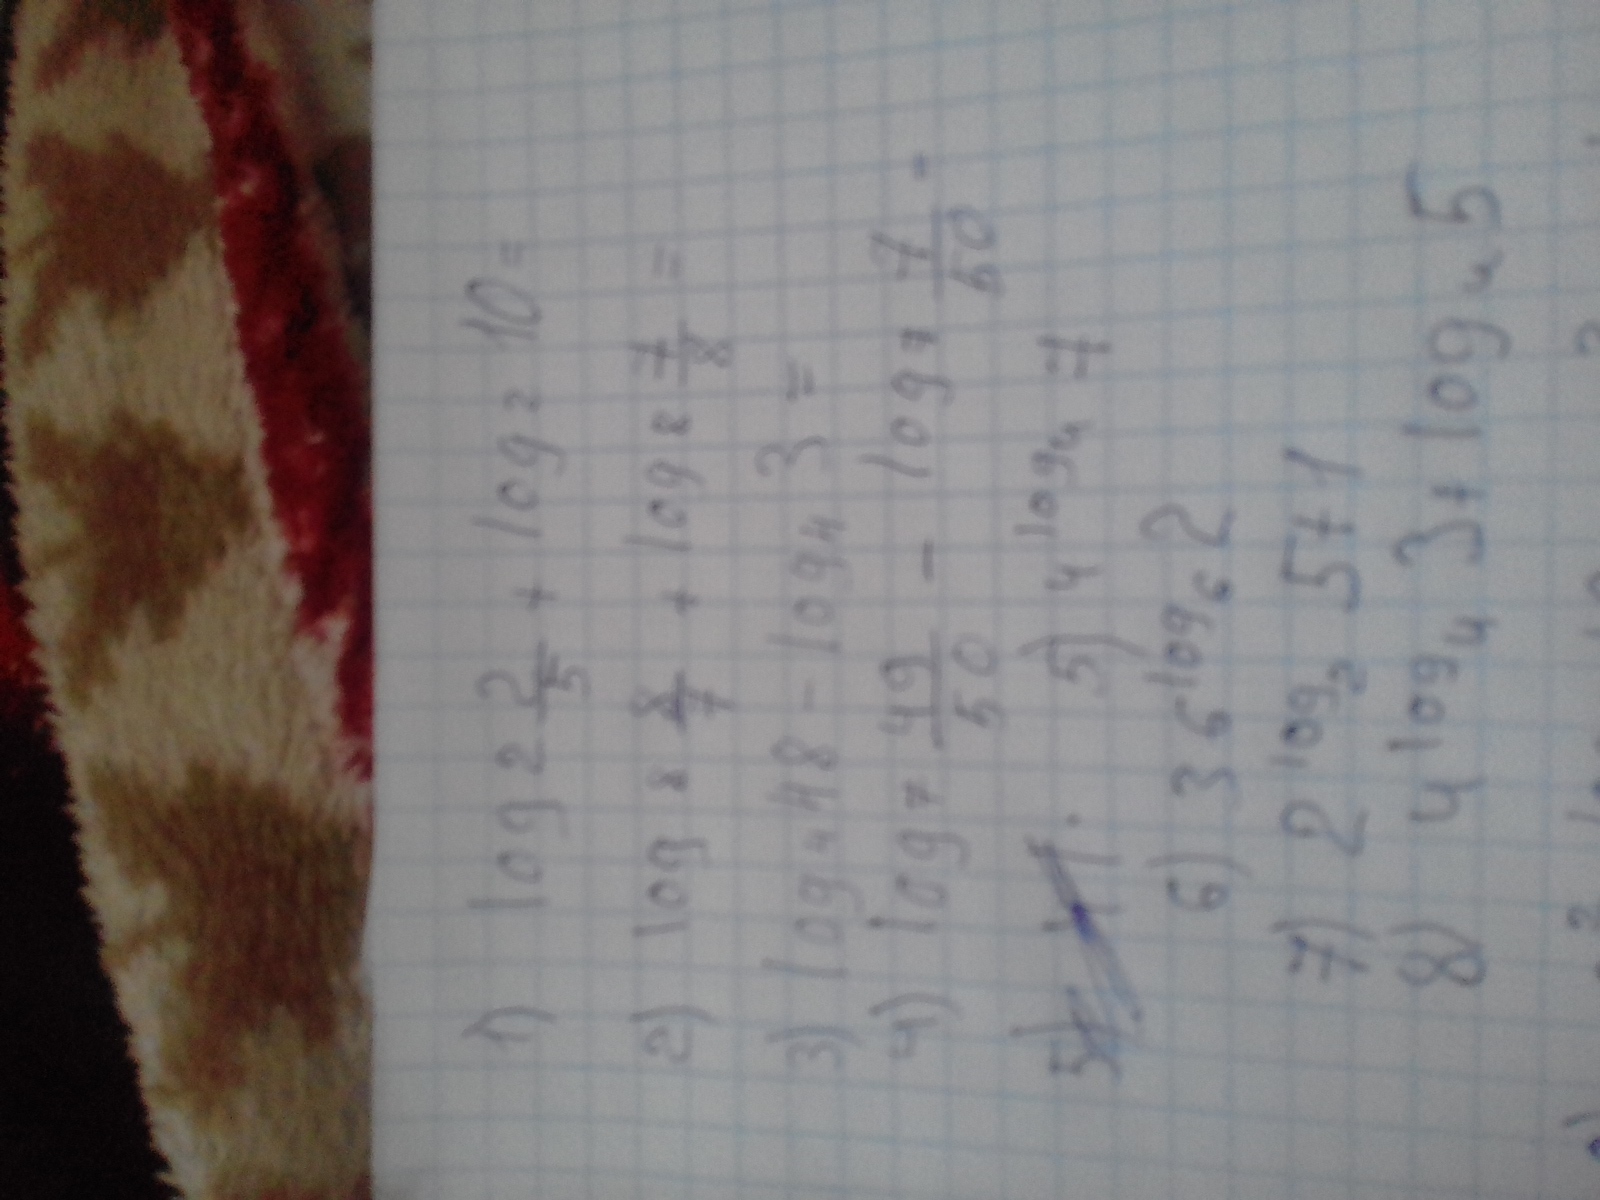 1) log 2 2/5 + log 2 10 =
2) log 8 8/7 + log 8 7/8 =
3) log 4 48 - log 4 3 =
4) log 7 49/50 - log 7 7/50 -
5) 4 log 4 7
6) 36 log 6 2
7) 2 log 2 5+1
8) 4 log 4 3+log 4 5